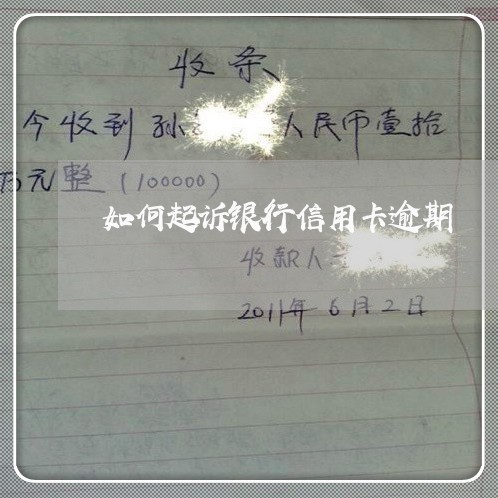 收条
今收到孙 人民币壹拾
万元整（100000）
如何起诉银行信用卡逾期
收款人
2011年6月2日